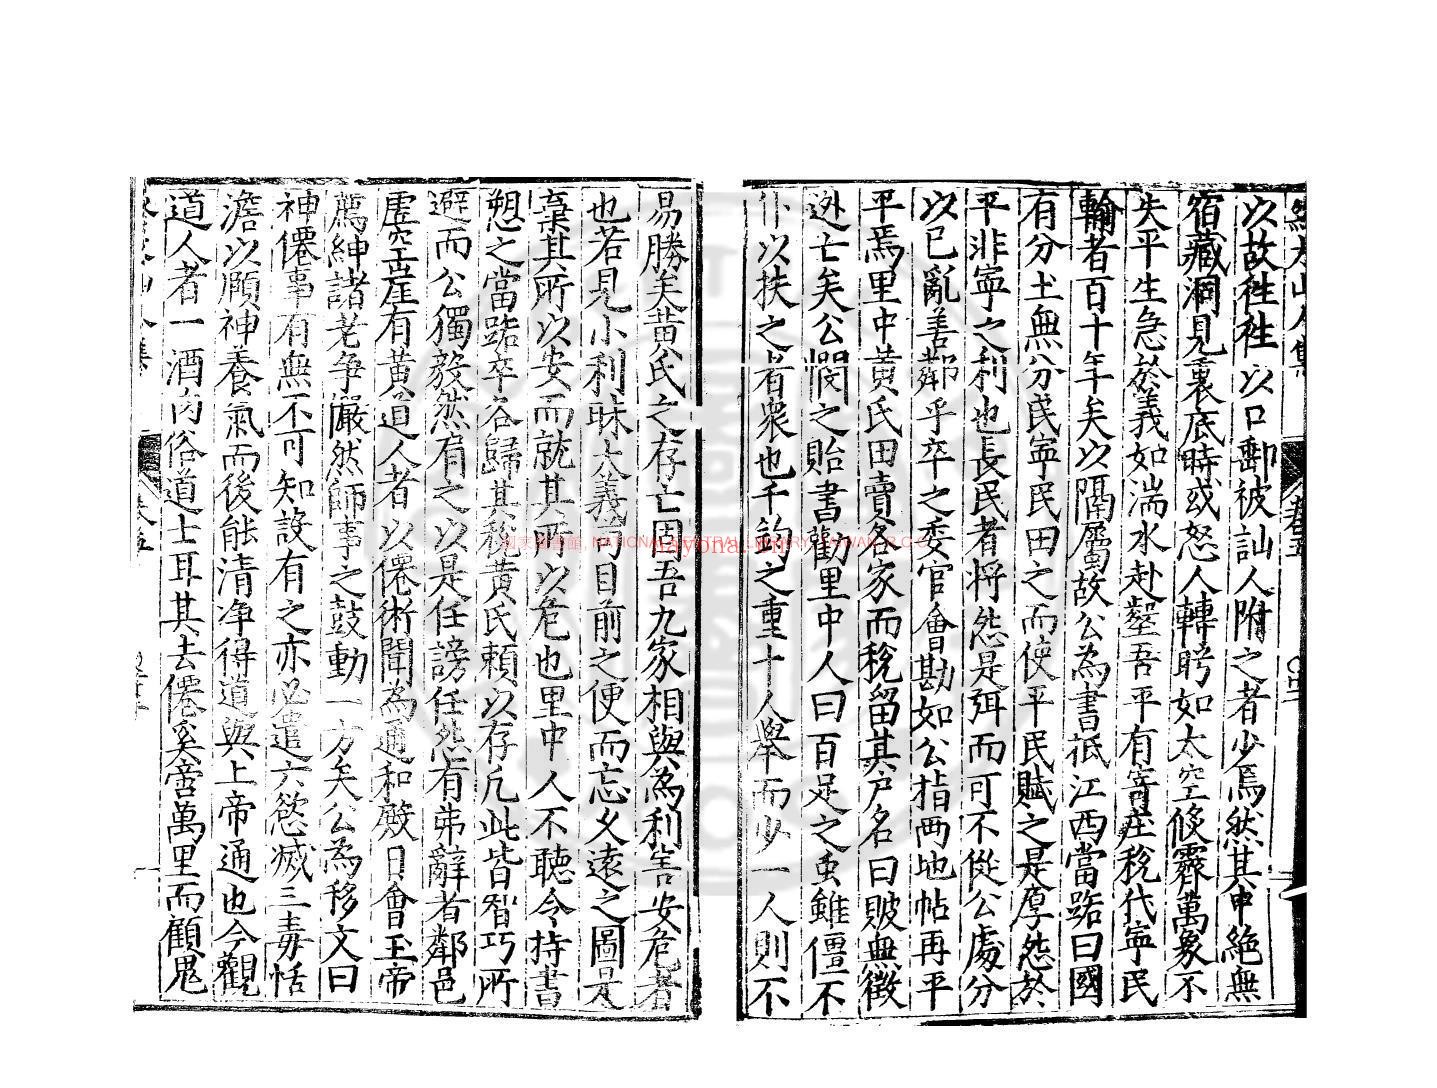 以故徃徃以口鄞被訕人附之者少焉然其中絶無
宿藏洞見裏底時或怒人轉盻如太空倐霽萬象不
失平生急於義如湍水赴壑吾平有寄庄稅代寧民
輸者百十年矣以隔屬故公為書抵江西當路曰國
有分土無分民寧民田之而使平民賦之是厚怨於
平非寧之利也長民者將怨是弭而可不從公處分
以已亂善鄰乎卒之委官會勘如公指两地帖再平
平焉里中黄氏田賣名家而稅留其户名曰貱無徴
迯亡矣公憫之貽書勸里中人曰百足之虫雖僵不
仆以扶之者衆也千鈞之重十人舉而少一人則不
易勝矣黄氏之存亡固吾九家相與為利害安危者
也若見小利昧大義苟目前之便而忘乆逺之圖是
棄其所以安而就其所以危也里中人不聽令持書
愬之當路卒各歸其稅黄氏頼以存凢此皆智巧所
避而公獨毅然有之以是任謗任怨有弗辭者鄰邑
虚空崖有黄道人者以僊術聞為通和殿日會玉帝
薦紳諸老争嚴然師事之鼓動一方矣公為移文曰
神僊事有無不可知設有之亦必遣六慾滅三毒恬
澹以願神養氣而後能清净得道與上帝通也今觀
道人者一酒肉俗道士耳其去僊奚啻萬里而顧鬼
卷五